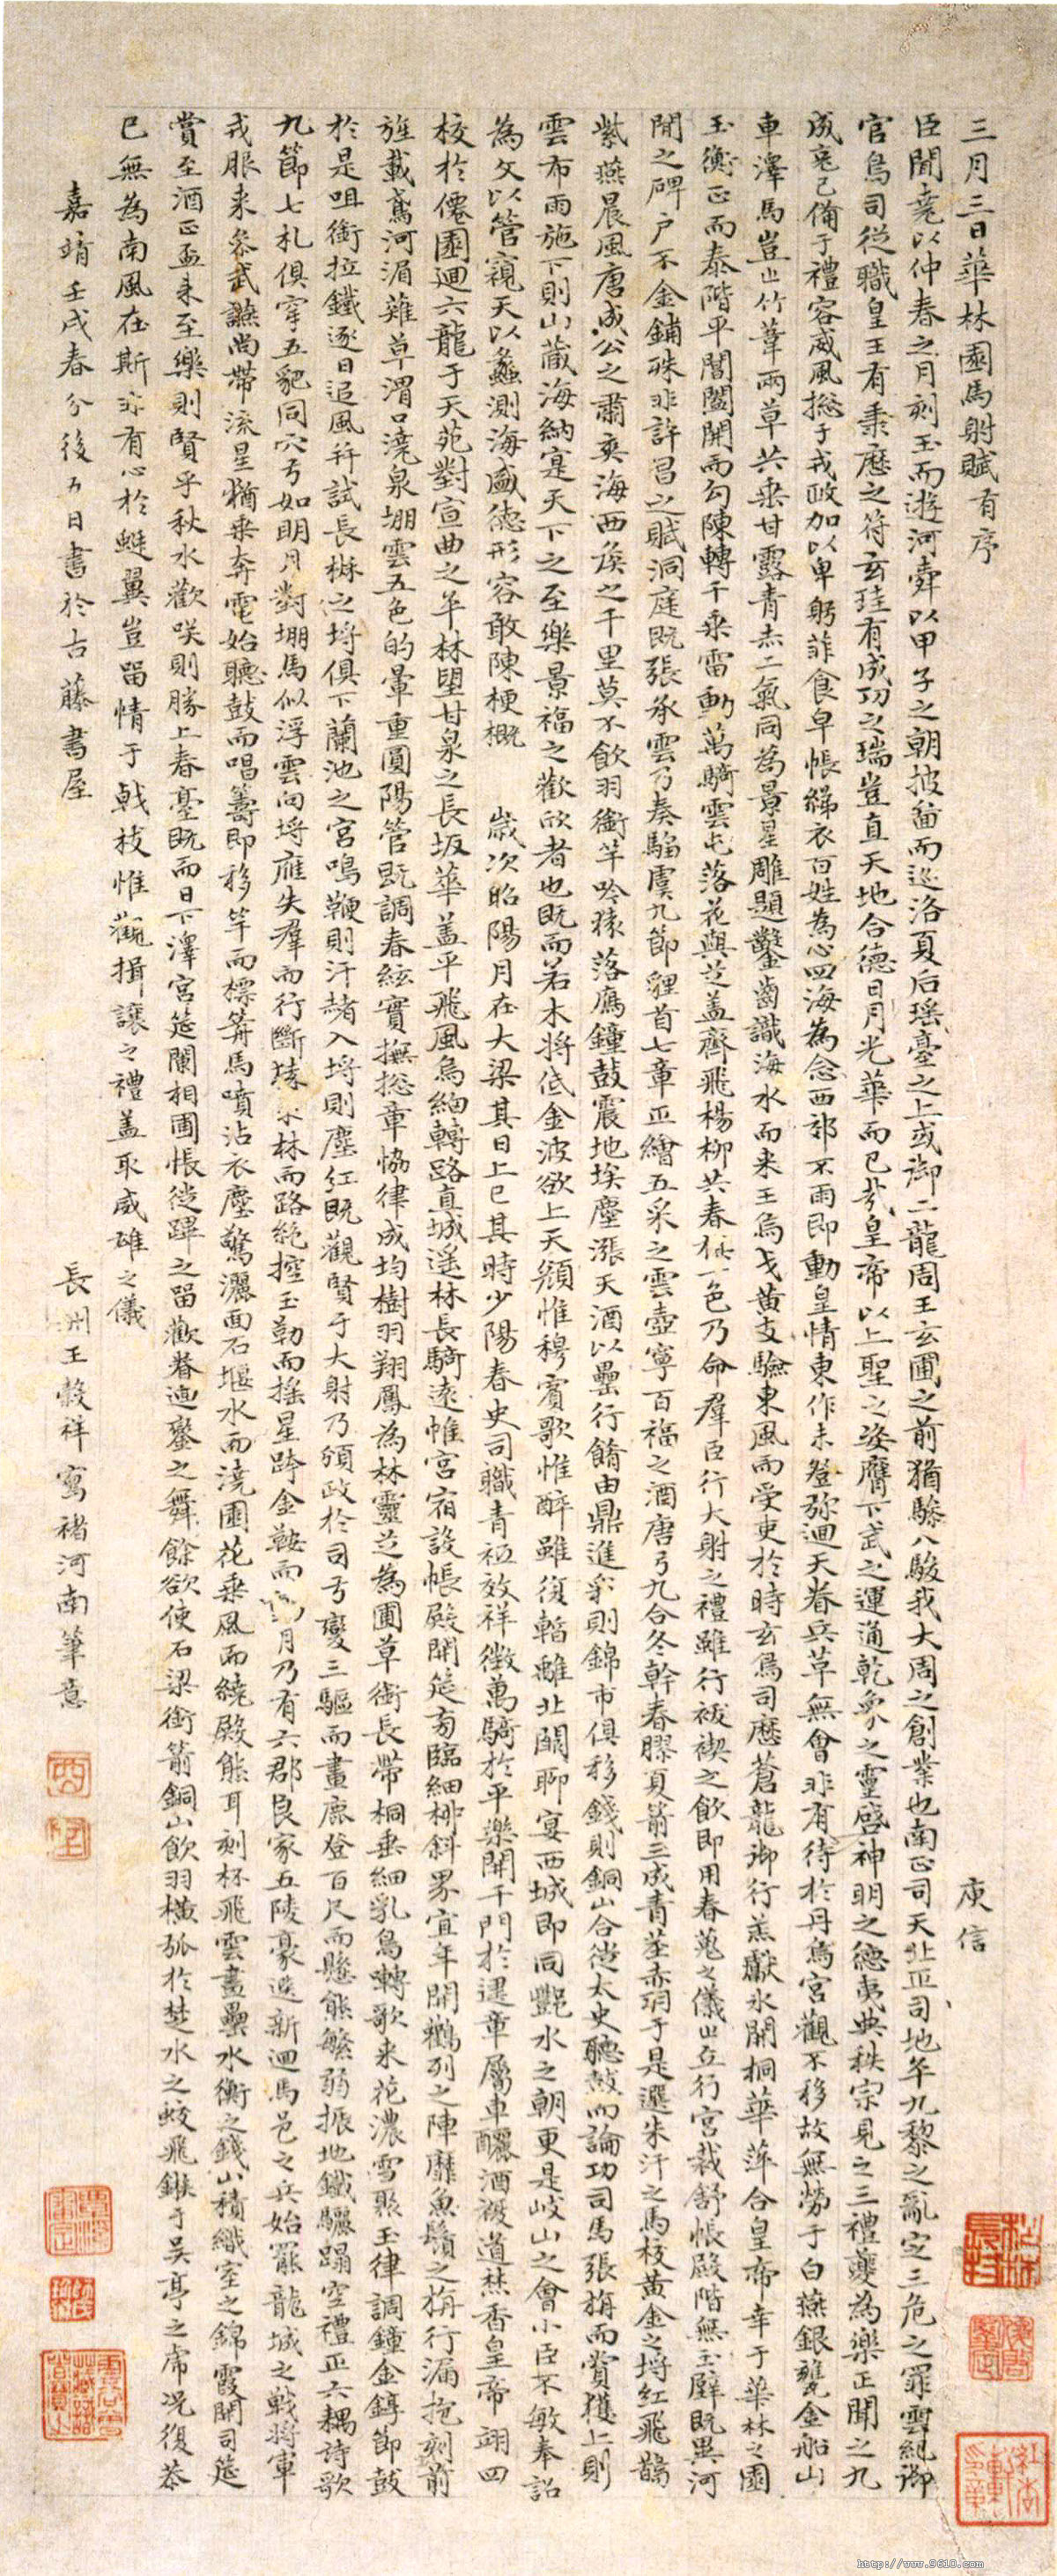 三月三日華林園馬射賦有序 庾信
臣聞堯以仲春之月刻玉而遊河舜以甲子之朝披啚而巡洛夏后瑤臺之上或御二龍周王玄圃之前猶驂八駿我大周之創業也南正司天北正司地平九黎之亂定三危之罪雲紀御
官鳥司從職皇王有秉歷之符玄珪有成功之瑞豈直天地合德日月光華而已哉皇帝以上聖之姿膺下武之運通乾象之靈啓神明之德夷典秩宗見之三禮夔為樂正聞之九
成克己備于禮容威風總于戎政加以卑躬菲食皁帳綈衣百姓為心四海為念西郊不雨即動皇情東作未登弥迴天眷兵革無會非有待於丹烏宮觀不移故無勞于白燕銀甕金船山
車澤馬豈止竹葦兩草共垂甘露青赤二氣同為景星雕題鑿齒識海水而来王烏弋黃支驗東風而受吏於時玄鳥司歷蒼龍御行羔獻冰開桐華萍合皇帝幸于華林之園
玉衡正而泰階平閶闔開而勾陳轉千乘雷動萬騎雲屯落花與芝蓋齊飛楊柳共春旗一色乃命羣臣行大射之禮雖行祓禊之飲即用春蒐之儀止立行宮裁舒帳殿階無玉璧既異河
間之碑户不金鋪殊非許昌之賦洞庭既張承雲乃奏騶虞九節貍首七章正繪五采之雲壺寧百福之酒唐弓九合冬幹春膠夏箭三成青莖赤羽于是選朱汗之馬校黃金之埒紅飛鵲
紫燕晨風唐成公之肅爽海西侯之千里莫不飲羽銜竿吟猿落鴈鐘鼓震地埃塵漲天酒以罍行餚由鼎進采則錦市俱移錢則銅山合徙太史聽鼓而論功司馬張旃而賞獲上則
雲布雨施下則山藏海納寔天下之至樂景福之歡欣者也既而若木將低金波欲上天顏惟穆賓歌惟醉雖復暫離北闕聊宴西城即同酆水之朝更是岐山之會小臣不敏奉詔
為文以管窺天以蠡測海盛德形容敢陳梗概 歲次昭陽月在大梁其日上巳其時少陽春史司職青祇效祥徵萬騎於平樂開千門於建章屬車釃酒複道焚香皇帝翊四
校於僊園迴六龍于天苑對宣曲之平林望甘泉之長坂華蓋平飛風烏緬轉路直城遙林長騎遠帷宮宿設帳殿開筵旁臨細柳斜界宜年開鸛列之陣靡魚鬚之旃行漏抱刻前
旌載鳶河湄薙草渭口澆泉堋雲五色的暈重圓陽管既調春絃實撫總章恊律成均樹羽翔鳳為林靈芝為圃草銜長帶桐垂細乳鳥囀歌来花濃雪聚玉律調鐘金錞節鼓
於是咀銜拉鐵逐日追風并試長楸之埒俱下蘭池之宮鳴鞭則汗赭入埒則塵紅既觀賢于大射乃頒政於司弓變三驅而畫鹿登百尺而懸熊繁弱振地鐵驪蹋空禮正六耦詩歌
九節七札俱穿五豝同穴弓如明月對堋馬似浮雲向埒雁失羣而行斷猿求林而路絶控玉勒而搖星跨金鞍而動月乃有六郡良家五陵豪選新迴馬邑之兵始罷龍城之戰將軍
戎服来參武讌尚帶流星猶乘奔電始聽鼓而唱籌即移竿而標箭馬噴沾衣塵驚灑面石堰水而澆園花乘風而繞殿熊耳刻杯飛雲畫罍水衡之錢山積織室之錦霞開司筵
賞至酒正盃来至樂則賢乎秋水歡咲則勝上春臺既而日下澤宮筵闌相圃悵徙蹕之留歡眷迴鑾之舞餘欲使石梁銜箭銅山飲羽橫弧於楚水之蛟飛鏃于吳亭之虎况復恭
己無為南風在斯非有心於蜓翼豈留情于戟枝惟觀揖讓之禮蓋取威雄之儀
嘉靖壬戌春分後五日書於古藤書屋 長洲王穀祥寫褚河南筆意
http://www.9610.com